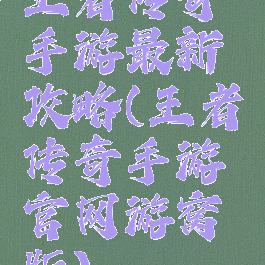 王者传奇
手游最新
攻略(王者
传奇手游
官网游窝
版)